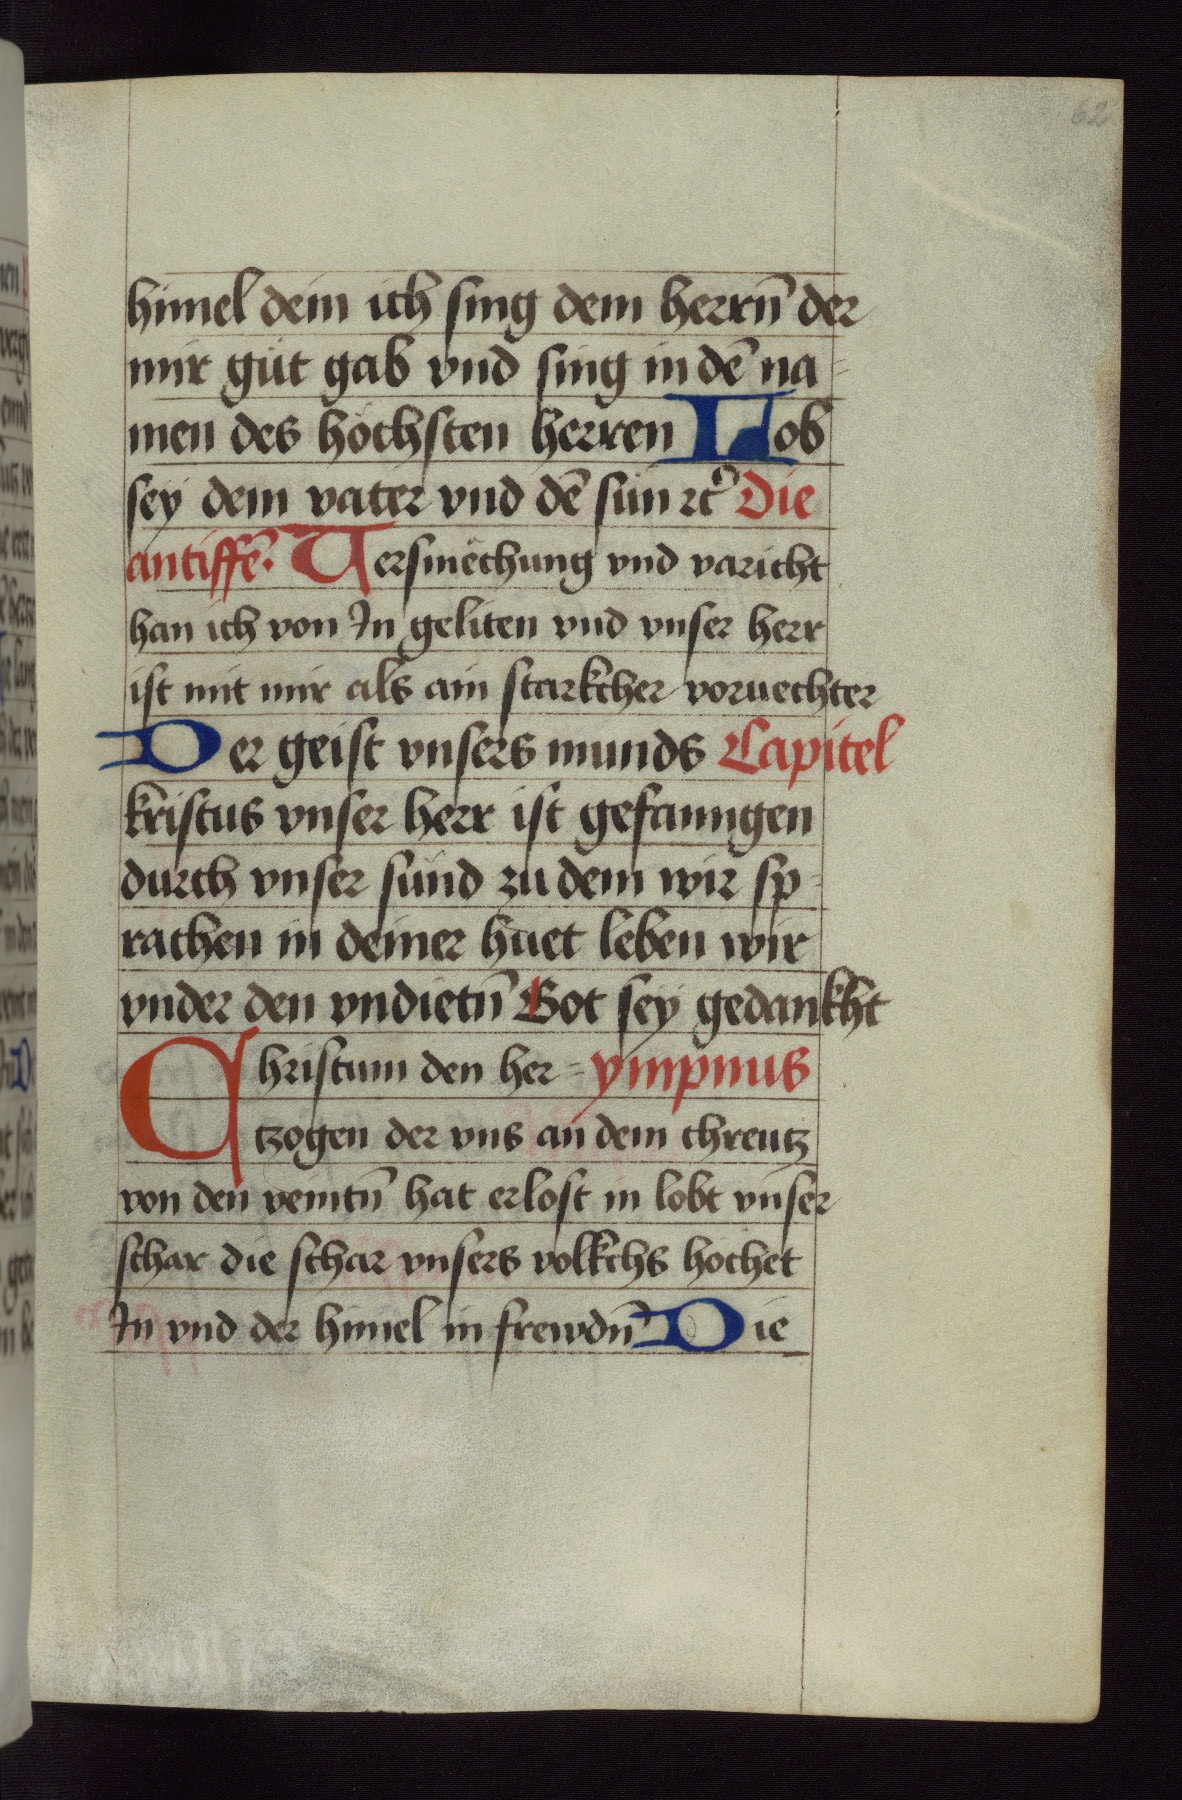 62
himel dein ich sing dem herrn̄ der
mir gůt gab vnd sing in dē na-
men des höchsten herren Lob
sey dem vater vnd dē sün ꝛc̄ Die
antiffē. Versmëchung vnd varicht
han ich von In geliten vnd vnser herr
ist mit mir als ain starkcher voruechter
Der geist vnsers munds Capitel
kristus vnser herr ist gefanngen
durch vnser sünd zu dem wir sp-
rachen in deiner hüet leben wir
vnder den vndietn̄ Got sey gedankht
Christum den her= ympnus
tzogen der vns an dem chreutz
von den veintn̄ hat erlost in lobt vnser
schar die schar vnsers volkchs hochet
In vnd der himel in frewdn̄ Die